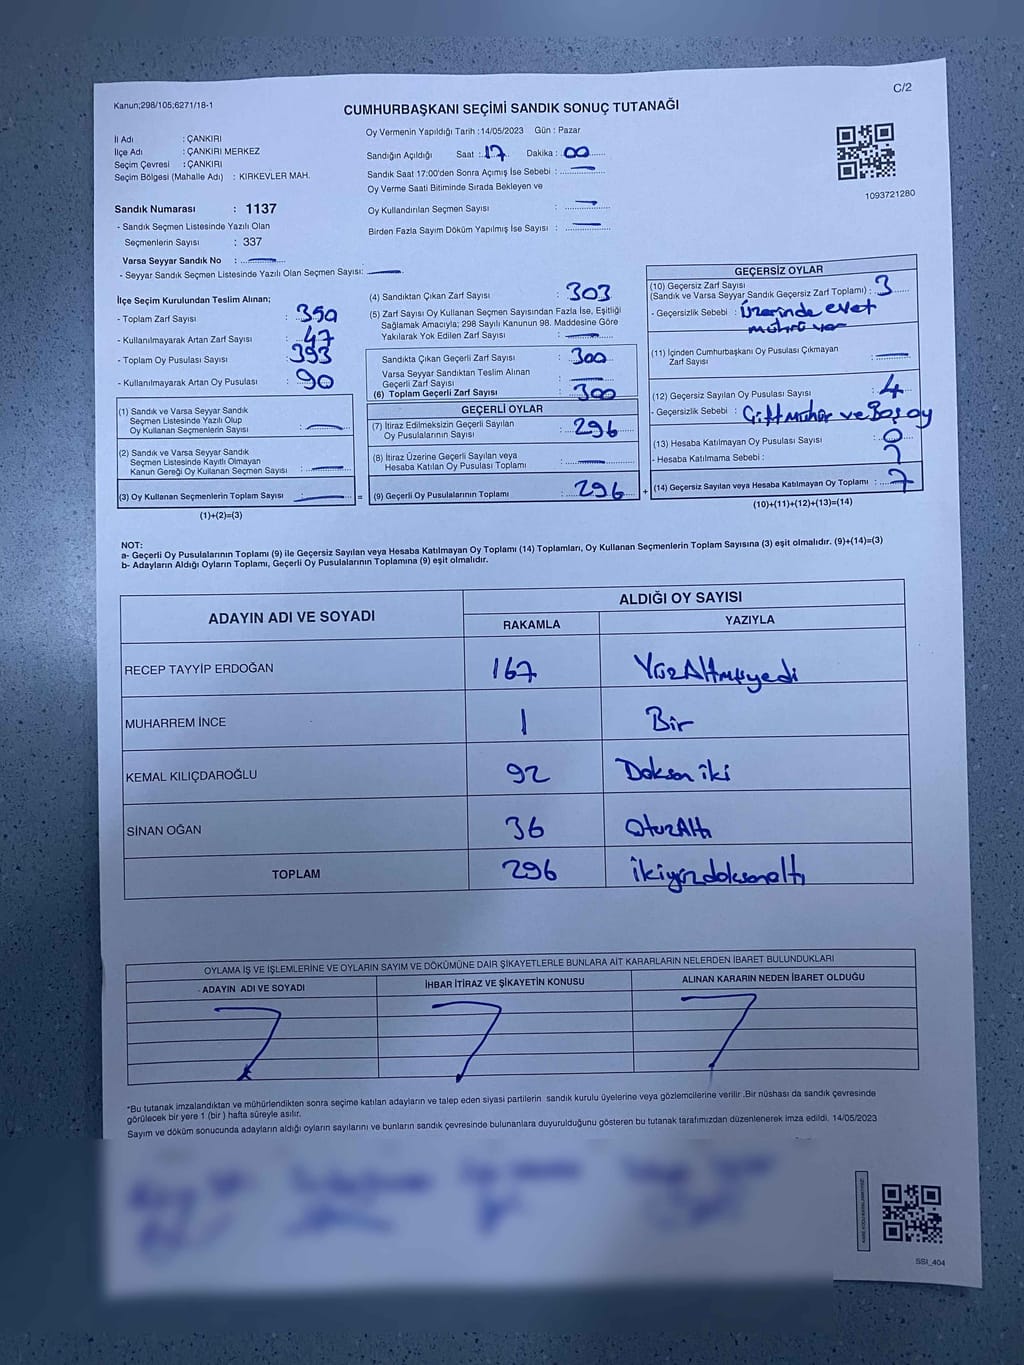 Kanun;298/105;6271/18-1
C/2
CUMHURBAŞKANI SEÇİMİ SANDIK SONUÇ TUTANAĞI
İl Adı : ÇANKIRI
İlçe Adı : ÇANKIRI MERKEZ
Seçim Çevresi : ÇANKIRI
Seçim Bölgesi (Mahalle Adı) : KIRKEVLER MAH.
Oy Vermenin Yapıldığı Tarih :14/05/2023 Gün : Pazar
Sandığın Açıldığı Saat : 17 Dakika : 00
Sandık Saat 17:00'den Sonra Açımış İse Sebebi : —
Oy Verme Saati Bitiminde Sırada Bekleyen ve
Oy Kullandırılan Seçmen Sayısı : —
Birden Fazla Sayım Döküm Yapılmış İse Sayısı : —
1093721280
Sandık Numarası : 1137
- Sandık Seçmen Listesinde Yazılı Olan
Seçmenlerin Sayısı : 337
Varsa Seyyar Sandık No : —
- Seyyar Sandık Seçmen Listesinde Yazılı Olan Seçmen Sayısı: —
İlçe Seçim Kurulundan Teslim Alınan;
- Toplam Zarf Sayısı : 350
- Kullanılmayarak Artan Zarf Sayısı : 47
- Toplam Oy Pusulası Sayısı : 393
- Kullanılmayarak Artan Oy Pusulası : 90
(1) Sandık ve Varsa Seyyar Sandık
Seçmen Listesinde Yazılı Olup
Oy Kullanan Seçmenlerin Sayısı : —
(2) Sandık ve Varsa Seyyar Sandık
Seçmen Listesinde Kayıtlı Olmayan
Kanun Gereği Oy Kullanan Seçmen Sayısı : —
(3) Oy Kullanan Seçmenlerin Toplam Sayısı : — =
(1)+(2)=(3)
(4) Sandıktan Çıkan Zarf Sayısı : 303
(5) Zarf Sayısı Oy Kullanan Seçmen Sayısından Fazla İse, Eşitliği
Sağlamak Amacıyla; 298 Sayılı Kanunun 98. Maddesine Göre
Yakılarak Yok Edilen Zarf Sayısı : —
Sandıkta Çıkan Geçerli Zarf Sayısı : 300
Varsa Seyyar Sandıktan Teslim Alınan
Geçerli Zarf Sayısı : —
(6) Toplam Geçerli Zarf Sayısı : 300
GEÇERLİ OYLAR
(7) İtiraz Edilmeksizin Geçerli Sayılan
Oy Pusulalarının Sayısı : 296
(8) İtiraz Üzerine Geçerli Sayılan veya
Hesaba Katılan Oy Pusulası Toplamı : —
(9) Geçerli Oy Pusulalarının Toplamı : 296 +
GEÇERSİZ OYLAR
(10) Geçersiz Zarf Sayısı
(Sandık ve Varsa Seyyar Sandık Geçersiz Zarf Toplamı) : 3
- Geçersizlik Sebebi : Üzerinde evet
mührü var
(11) İçinden Cumhurbaşkanı Oy Pusulası Çıkmayan
Zarf Sayısı : —
(12) Geçersiz Sayılan Oy Pusulası Sayısı : 4
- Geçersizlik Sebebi : Çift Mühür ve Boş oy
(13) Hesaba Katılmayan Oy Pusulası Sayısı : 0
- Hesaba Katılmama Sebebi :
(14) Geçersiz Sayılan veya Hesaba Katılmayan Oy Toplamı : 7
(10)+(11)+(12)+(13)=(14)
NOT:
a- Geçerli Oy Pusulalarının Toplamı (9) ile Geçersiz Sayılan veya Hesaba Katılmayan Oy Toplamı (14) Toplamları, Oy Kullanan Seçmenlerin Toplam Sayısına (3) eşit olmalıdır. (9)+(14)=(3)
b- Adayların Aldığı Oyların Toplamı, Geçerli Oy Pusulalarının Toplamına (9) eşit olmalıdır.
ADAYIN ADI VE SOYADI ALDIĞI OY SAYISI
RAKAMLA YAZIYLA
RECEP TAYYİP ERDOĞAN 167 YüzAltmışyedi
MUHARREM İNCE 1 Bir
KEMAL KILIÇDAROĞLU 92 Doksan iki
SİNAN OĞAN 36 OtuzAltı
TOPLAM 296 ikiyüzdoksanaltı
OYLAMA İŞ VE İŞLEMLERİNE VE OYLARIN SAYIM VE DÖKÜMÜNE DAİR ŞİKAYETLERLE BUNLARA AİT KARARLARIN NELERDEN İBARET BULUNDUKLARI
ADAYIN ADI VE SOYADI İHBAR İTİRAZ VE ŞİKAYETİN KONUSU ALINAN KARARIN NEDEN İBARET OLDUĞU
*Bu tutanak imzalandıktan ve mühürlendikten sonra seçime katılan adayların ve talep eden siyasi partilerin sandık kurulu üyelerine veya gözlemcilerine verilir .Bir nüshası da sandık çevresinde
görülecek bir yere 1 (bir ) hafta süreyle asılır.
Sayım ve döküm sonucunda adayların aldığı oyların sayılarını ve bunların sandık çevresinde bulunanlara duyurulduğunu gösteren bu tutanak tarafımızdan düzenlenerek imza edildi. 14/05/2023
SSI_404